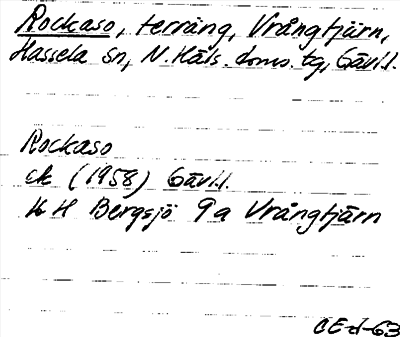 Rockaso, terräng, Vrångtjärn,
Hassela sn, N. Häls. doms. tg, Gävl.l.
Rockaso
ek (1958) Gävl.l.
K H Bergsjö 9a Vrångtjärn
CE-d-63